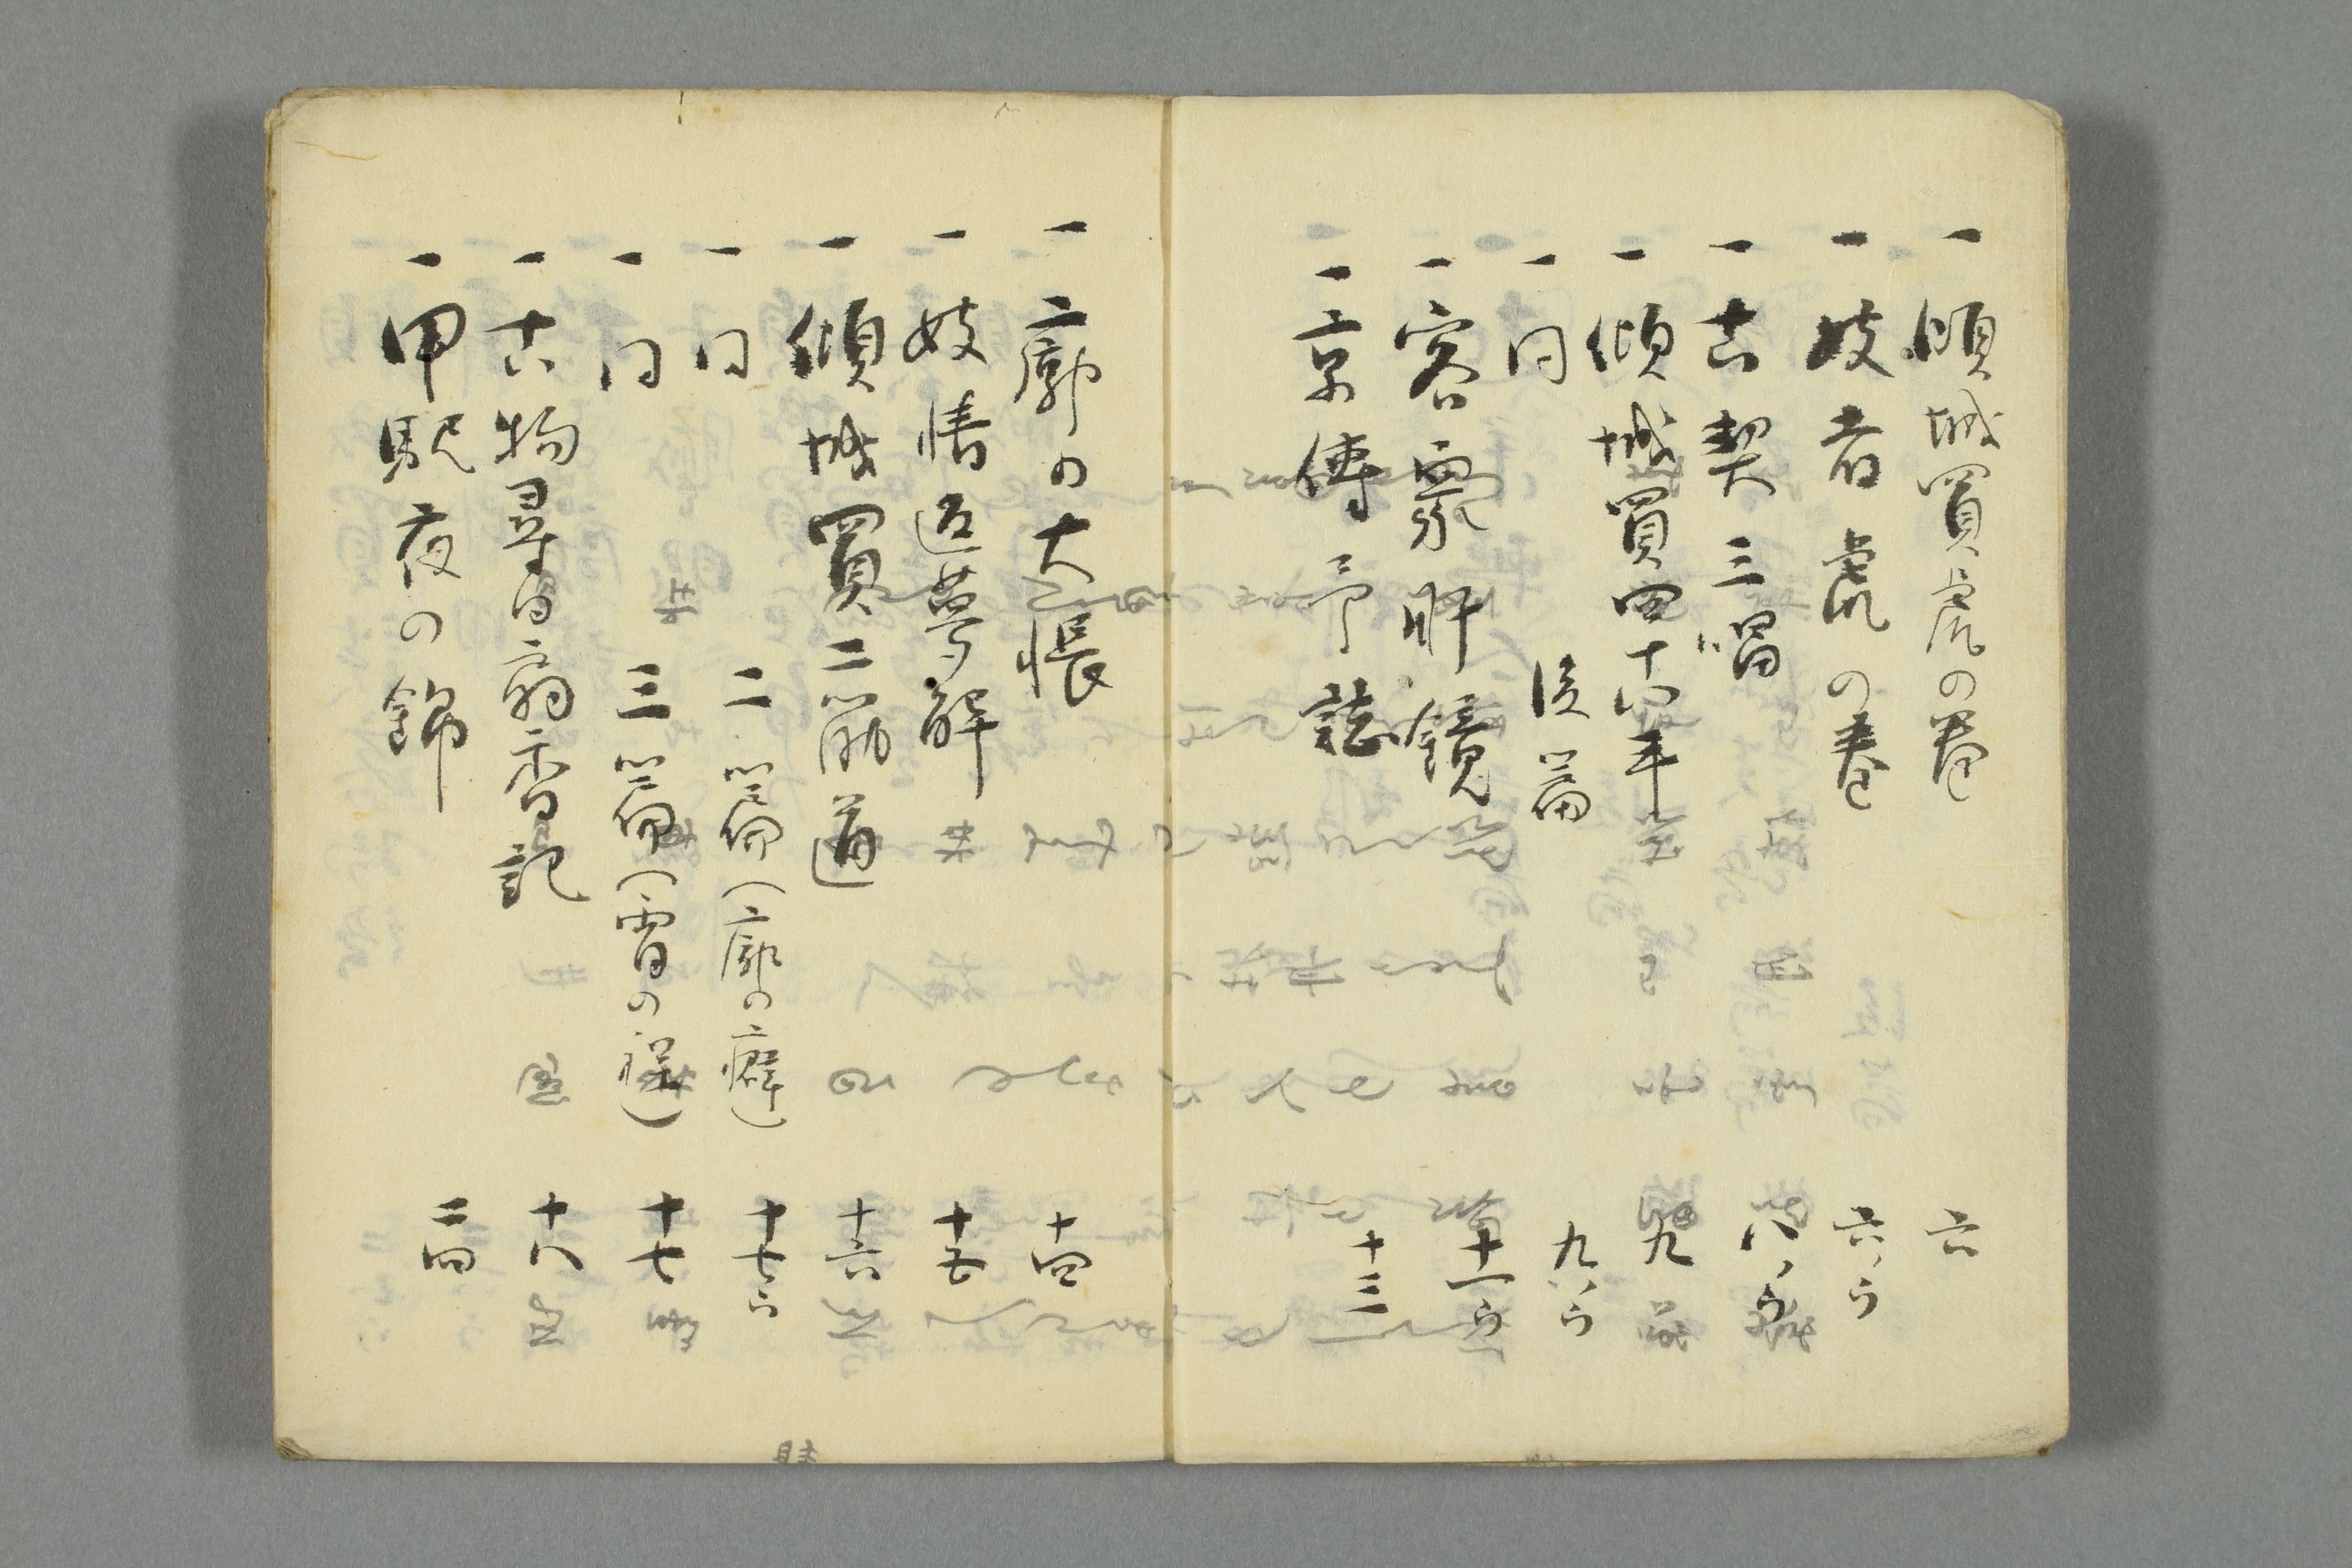 一傾城買虎の巻 六
一妓者虎の巻 六、ウ
一古契三唱 八、ウ
一傾城買四十八手 九
一同 後篇 九、ウ
一客衆肝鏡 十一ウ
一京傳予誌 十三
一廓の大帳 十四
一妓情返夢解 十五
一傾城買二筋道 十六
一同 二篇(廓の癖) 十七ウ
一同 三篇(宵の程) 十七
一古物尋日扇香記 十八
一甲駅夜の錦 二四